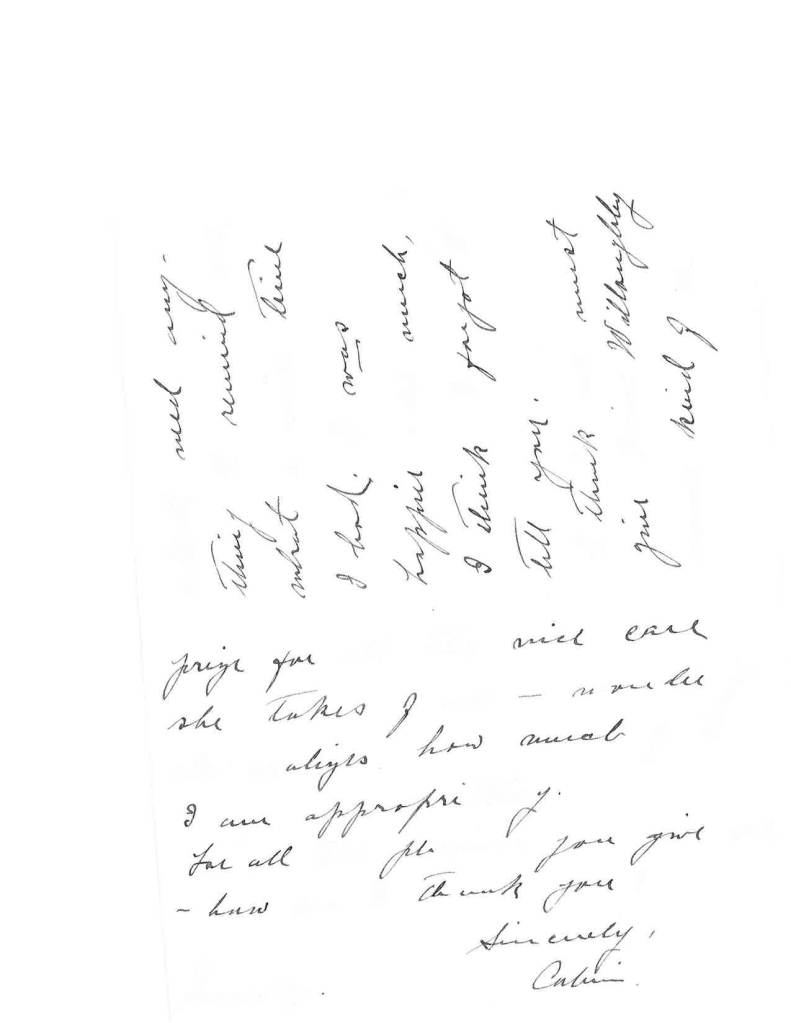 need any-
thing remind
what time
I had. was
happier much,
I think forgot
tell you.
I think must
give Willoughby
kind of
prize for nice care
she takes of –
how much
I am appropri y.
for all you give
– how thank you
Sincerely,